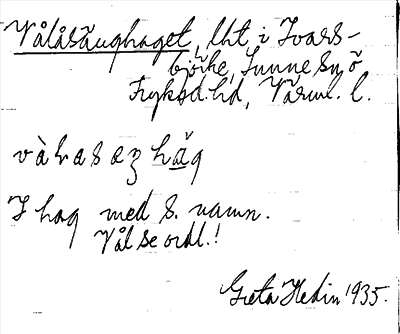 Vålåsäughaget, lht i Ivars-
björke, Sunne sn ö
Fryksd. hd, Värml. l.
vàlasæȝ hăg
I hag med s. namn.
Vål se ordl.!
Greta Hedin 1935.